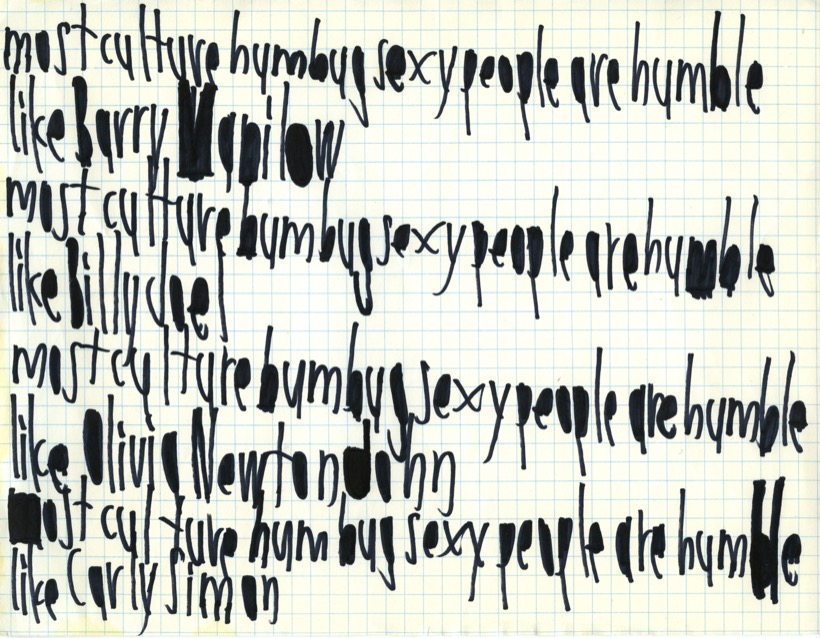 most culture humbug sexy people are humble
like Barry Manilow
most culture humbug sexy people are humble
like Billy Joel
most culture humbug sexy people are humble
like Olivia Newton John
most culture humbug sexy people are humble
like Carly Simon